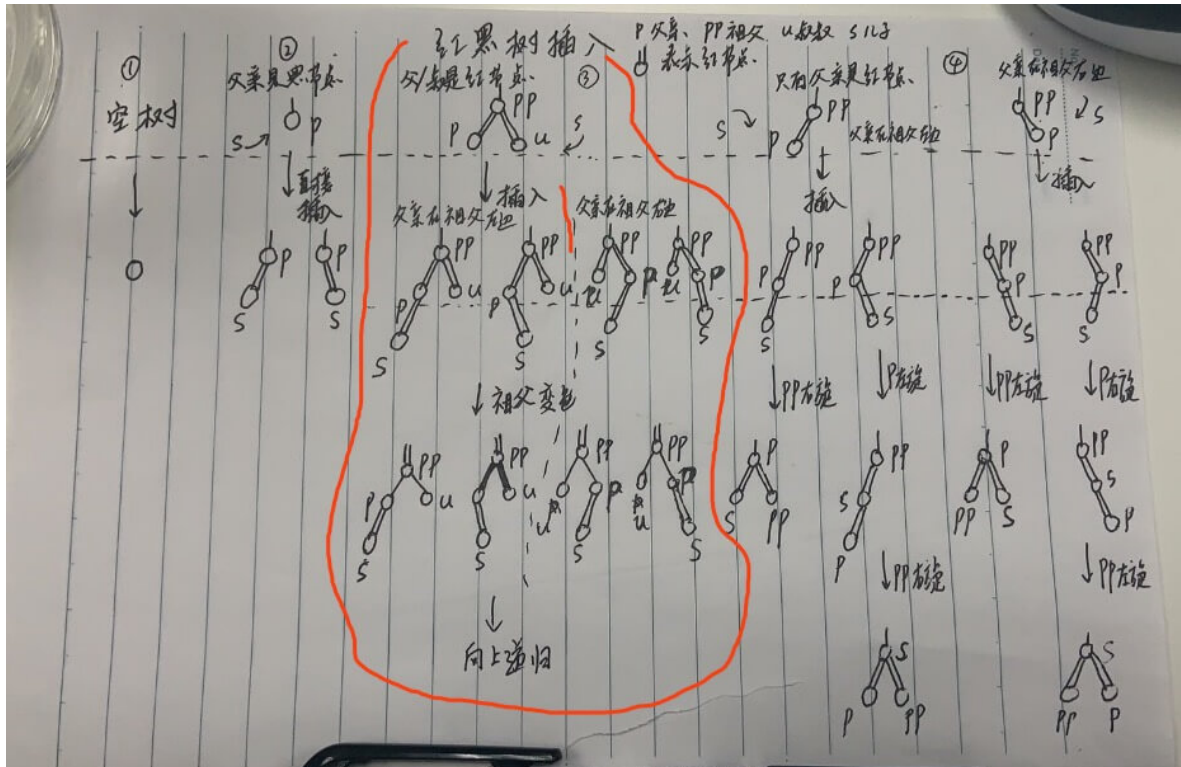 红黑树插入
P 父亲、PP 祖父 u 叔叔 S 儿子
表示红节点
①
空树
②
父亲是黑节点
P
S
直接
插入
P
P
S
S
③
PP
P
u
S
插入
父亲在祖父左边
父亲在祖父右边
PP
PP
PP
PP
P
u
P
u
u
P
u
P
S
S
S
S
祖父变色
PP
PP
PP
PP
P
u
u
u
P
u
S
S
S
S
向上递归
④
只有父亲是红节点
PP
S
P
父亲在祖父左边
插入
PP
PP
P
P
S
S
PP右旋
P左旋
S
PP
PP
S
P
PP右旋
S
P
PP
父亲在祖父右边
PP
S
P
插入
PP
PP
P
P
S
S
PP左旋
P右旋
P
PP
S
PP
S
P
PP左旋
S
PP
P